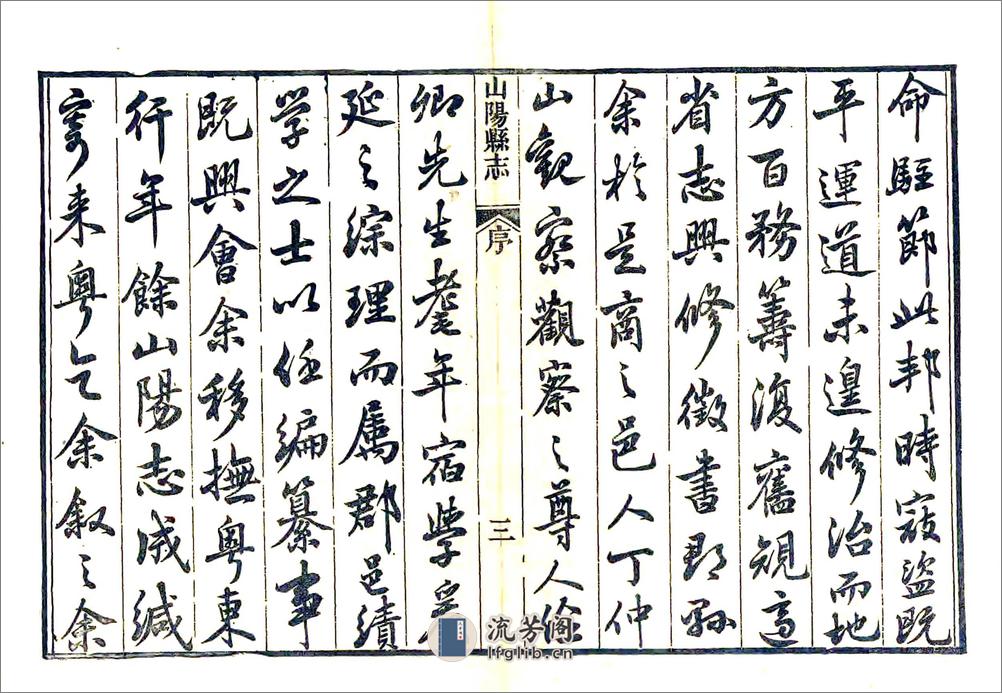 命駐節此邦時寇盜既
平運道未遑修治而地
方百務籌復舊規適
省志興修徵書郡縣
余於是商之邑人丁仲
山觀察觀察之尊人儉
山陽縣志 序 三
卿先生耄年宿學爰
延之綜理而屬郡邑績
學之士以任編纂事
既興會余移撫粵東
行年餘山陽志成緘
寄來粵乞余叙之余
流芳阁
lfglib.cn